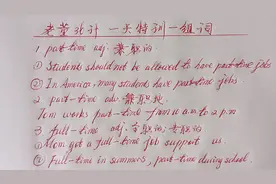 老董北计 一天特训一组词
1 part-time adj. 兼职的.
① Students should not be allowed to have part-time jobs
② In America, many students have part-time jobs
2 part-time adv. 兼职地.
Tom works part-time from 11 a.m to 2 p.m
3 full-time adj. 全职的; 专职的
① Mom got a full-time job support us.
② Full-time in summers, part-time during school.